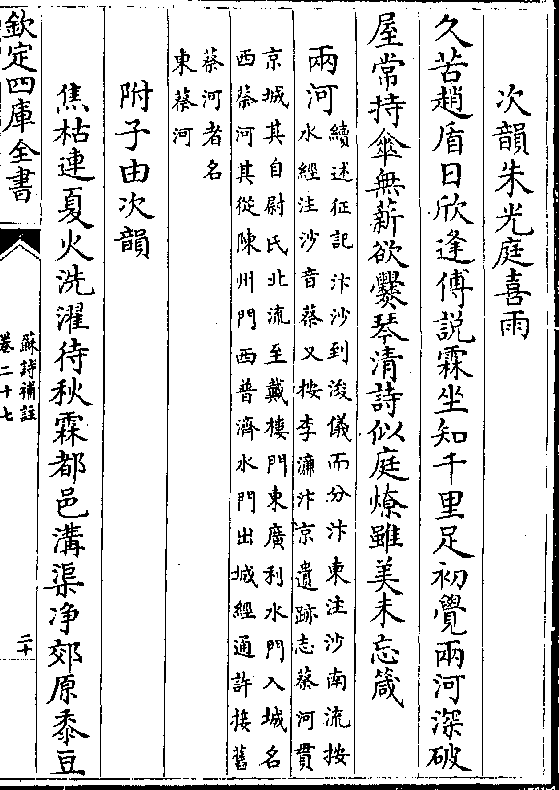 次韻朱光庭喜雨
久苦趙盾日欣逢傅説霖坐知千里足初覺兩河深破
屋常持傘無薪欲爨琴清詩似庭燎雖美未忘箴
兩河
續述征記汴沙到浚儀而分汴東注沙南流按
水經注沙音蔡又按李濂汴京遺跡志蔡河貫
京城其自尉氏北流至戴樓門東廣利水門入城名
西蔡河其從陳州門西普濟水門出城經通許接舊
蔡河者名
東蔡河
附子由次韻
焦枯連夏火洗濯待秋霖都邑溝渠净郊原黍豆
欽定四庫全書
蘇詩補註
卷二十七
二十